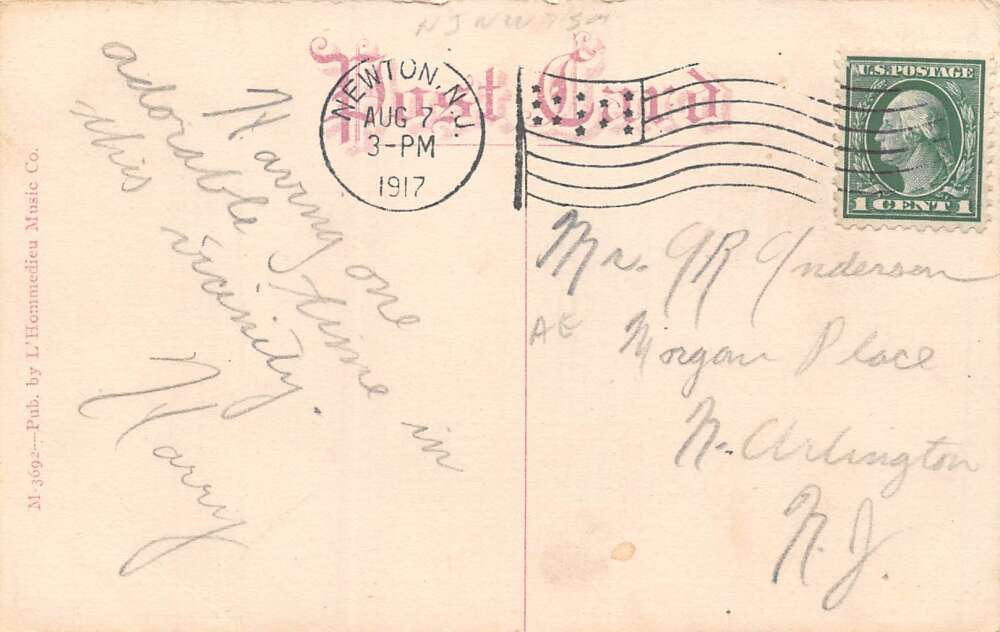 NJNWTSM
Post Card
NEWTON, N.J.
AUG 7
3-PM
1917
U.S. POSTAGE
1 CENT 1
Having one
adorable time in
this vicinity.
Harry
Mr. J R Anderson
AE
Morgan Place
N. Arlington
N. J.
M-3692—Pub. by L'Hommedieu Music Co.